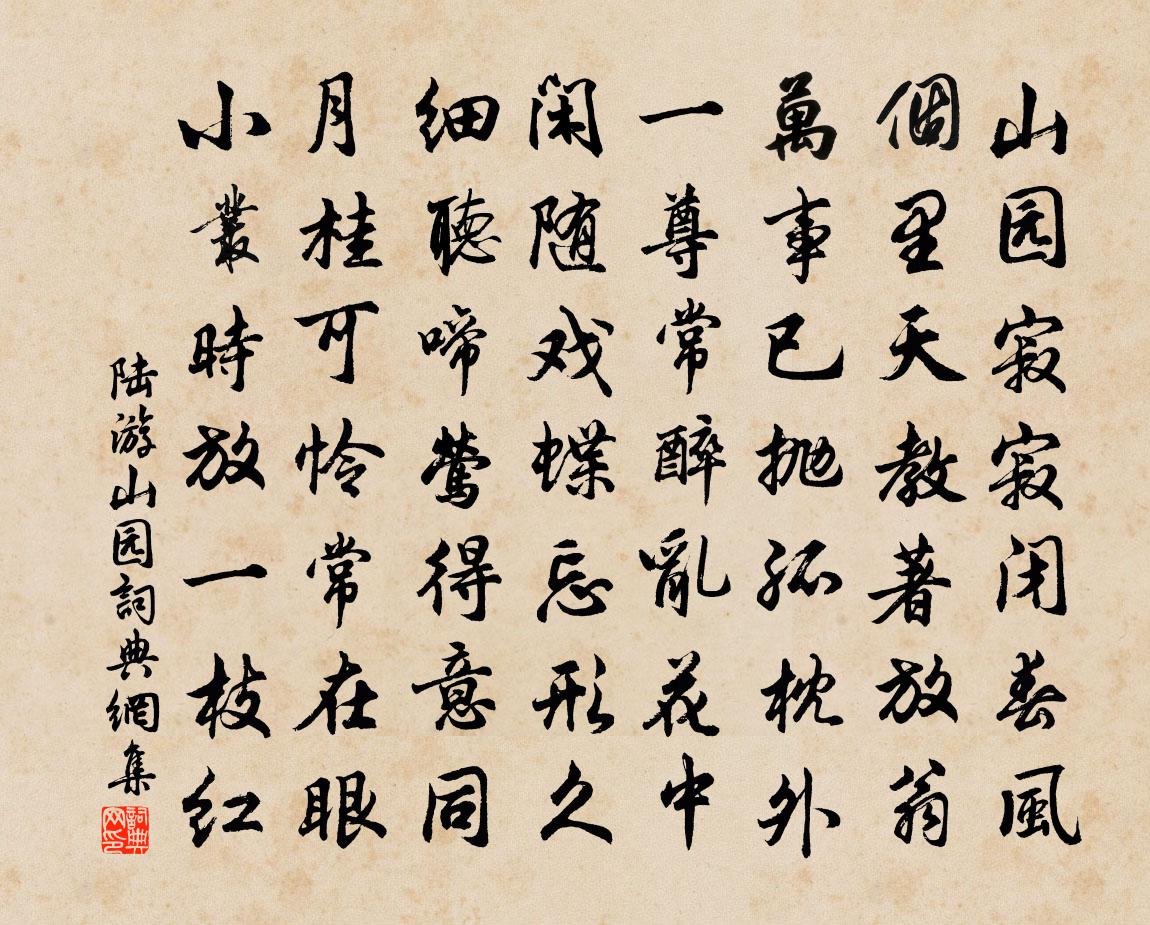 山园寂寂闭春風
個里天教著放翁
萬事已抛孤枕外
一尊常醉亂花中
閑随戏蝶忘形久
细聽啼鶯得意同
月桂可怜常在眼
小叢時放一枝红
陆游山园詞典網集
詞典网印